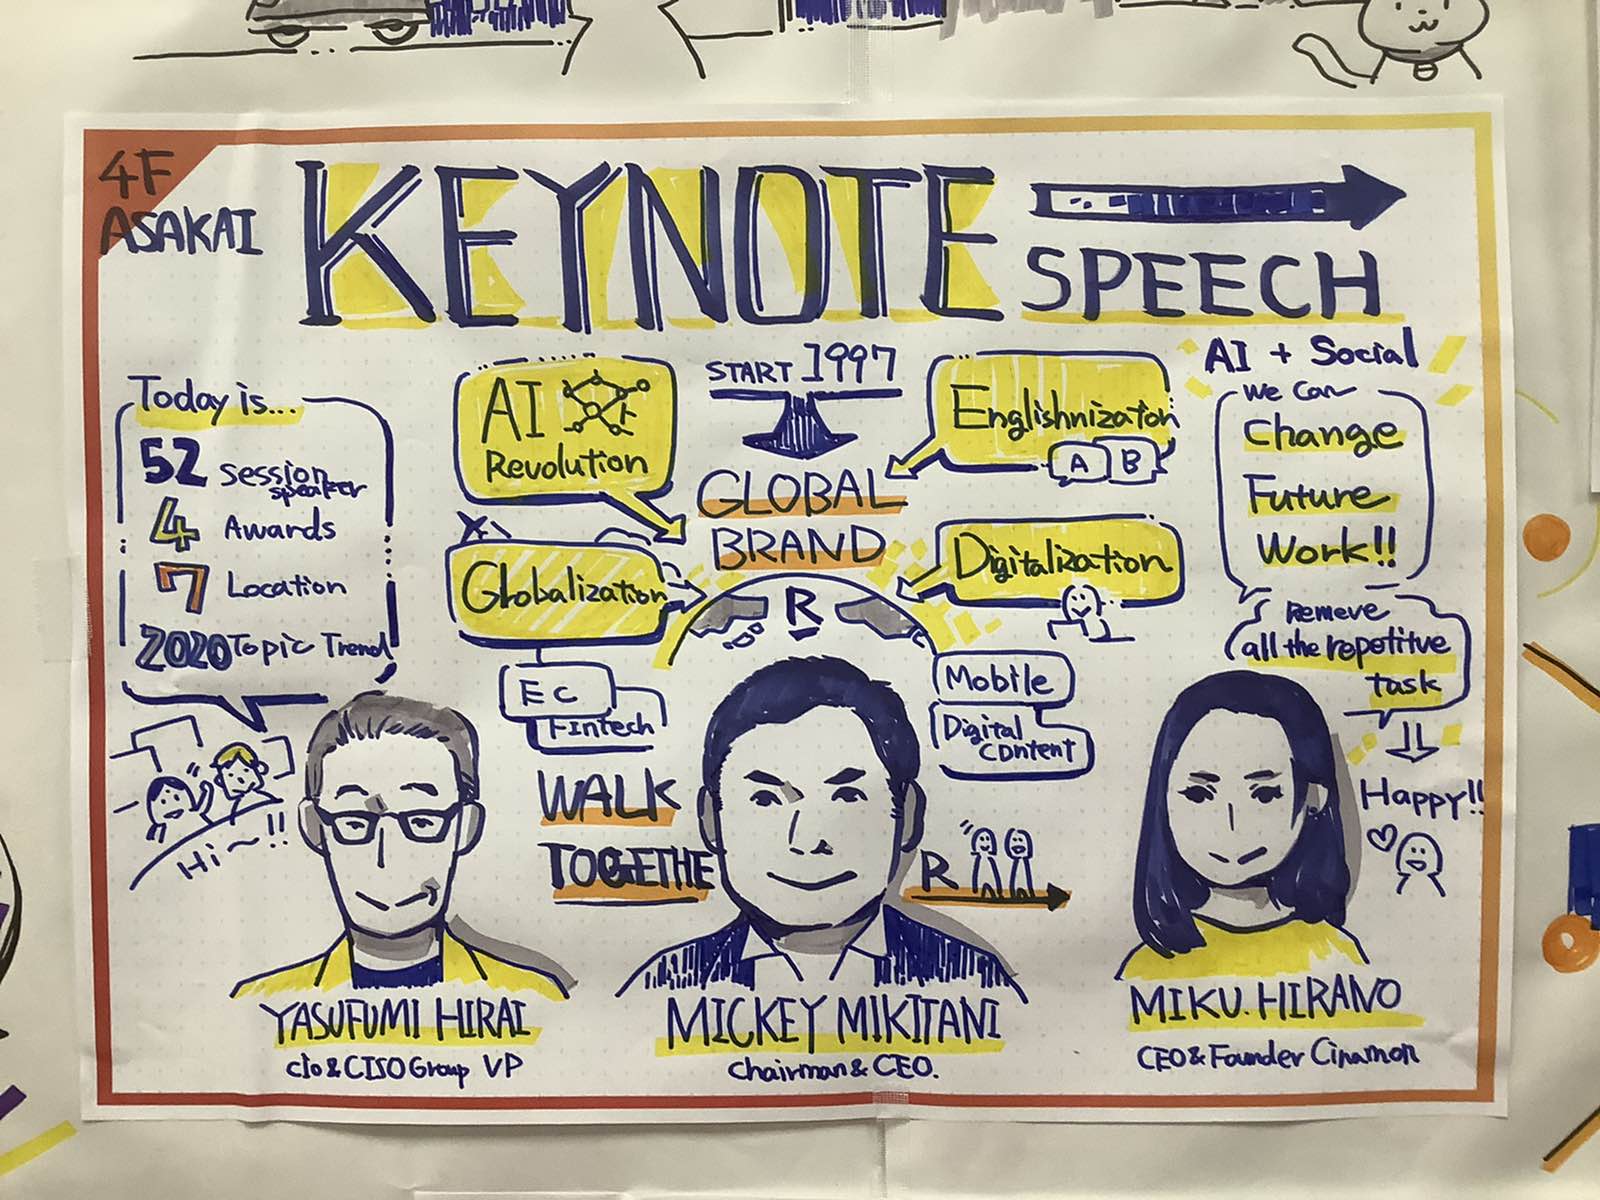 4F
ASAKAI
KEYNOTE
SPEECH
Today is...
52 Session
speaker
4 Awards
7 Location
2020 Topic Trend
Hi~!!
AI
Revolution
START 1997
GLOBAL
BRAND
Englishnization
A B
Globalization
Digitalization
R
EC
Fintech
Mobile
Digital
Content
WALK
TOGETHE R
AI + Social
We Can
Change
Future
Work!!
Remeve
all the repetitve
task
Happy!!
YASUFUMI HIRAI
CIO & CISO Group VP
MICKEY MIKITANI
Chairman & CEO.
MIKU. HIRANO
CEO & Founder Cinamon